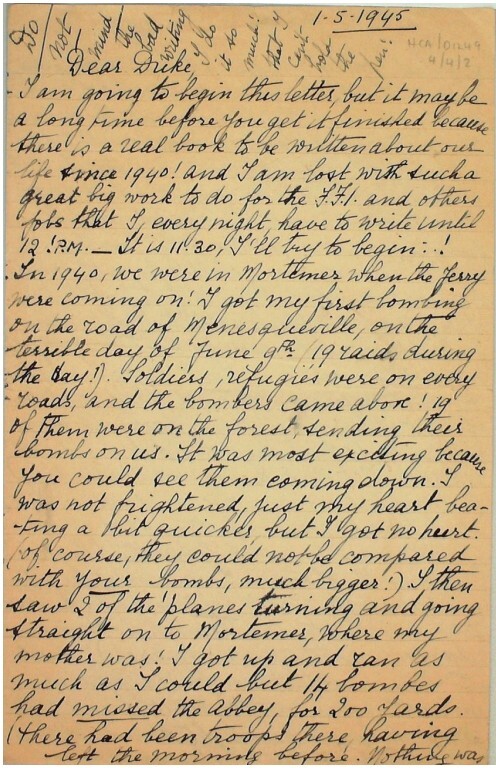 1-5-1945
Do not mind the bad writing I do it so much! that I can't hold the pen!
HCA/D1249
4/4/2
Dear Duke,
I am going to begin this letter, but it may be
a long time before you get it finished because
there is a real book to be written about our
life since 1940! and I am lost with such a
great big work to do for the F.F.I. and others
jobs that I, every night, have to write until
12! P.M. — It is 11.30, I'll try to begin..!
In 1940, we were in Mortemer when the Jerry
were coming on! I got my first bombing
on the road of Menesqueville, on the
terrible day of June 9th (19 raids during
the day!). Soldiers, refugies were on every
roads, and the bombers came above! 19
of them were on the forest, sending their
bombs on us. It was most exciting because
you could see them coming down. I
was not frightened, just my heart bea-
ting a bit quicker but I got no hurt.
(of course, they could not be compared
with your bombs, much bigger!) I then
saw 2 of the planes turning and going
straight on to Mortemer, where my
mother was! I got up and ran as
much as I could but 14 bombes
had missed the abbey, for 200 yards.
(there had been troops there, having
left the morning before. Nothing was